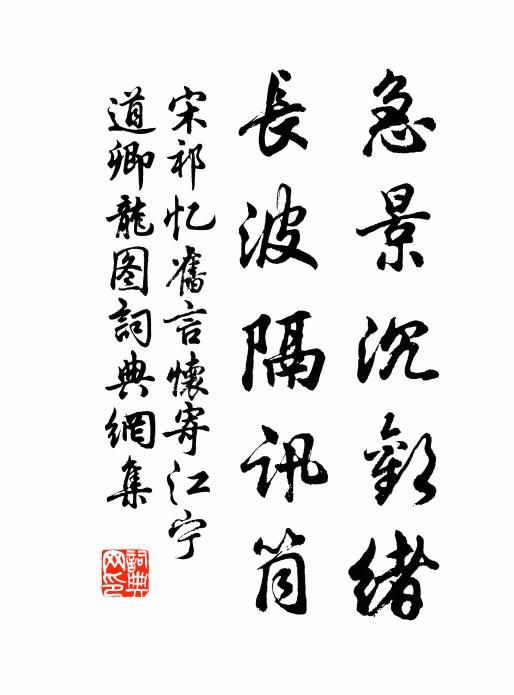 急景沉歡緒
長波隔訊筒
宋祁忆舊言懷寄江宁
道卿龍图詞典網集
詞典
网印